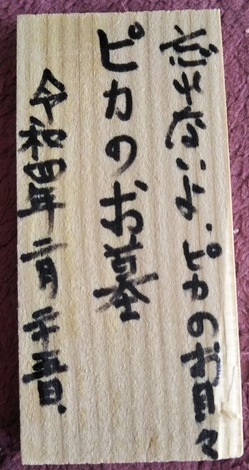 忘れないよ、ピカのお日々
ピカのお墓
令和四年二月二十五日、